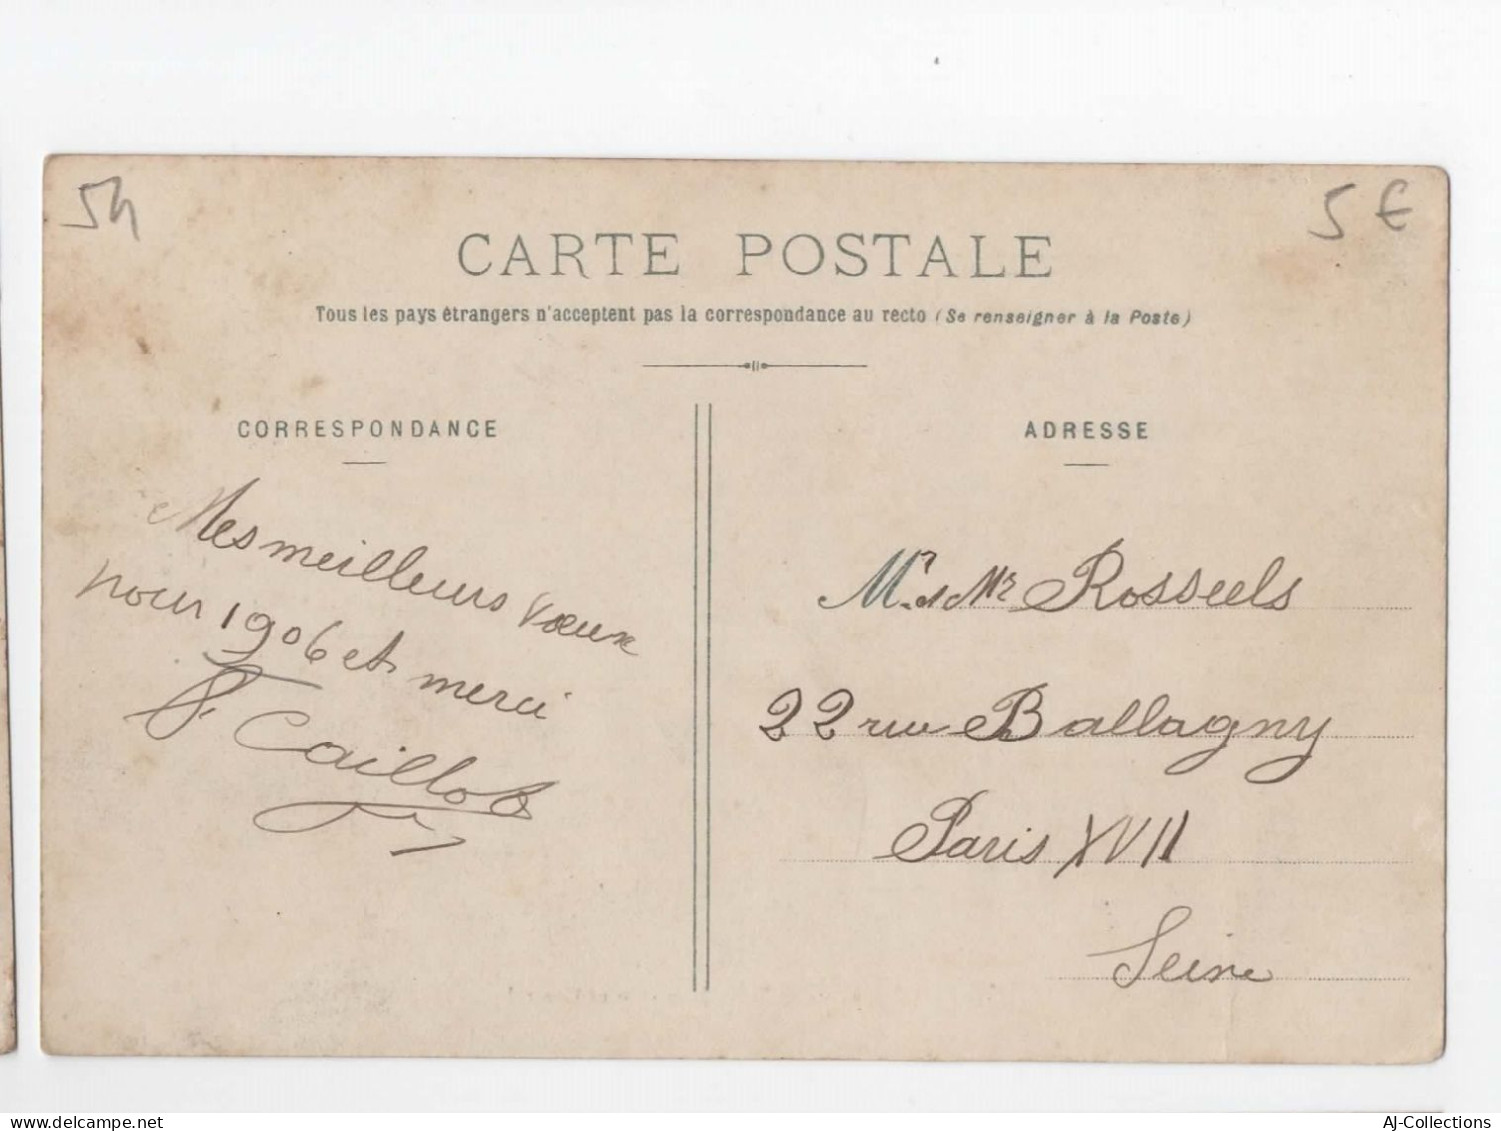 54
5 €
CARTE POSTALE
Tous les pays étrangers n'acceptent pas la correspondance au recto (Se renseigner à la Poste)
CORRESPONDANCE
Mes meilleurs vœux
pour 1906 et merci
Caillot
ADRESSE
Mr et Me Rosseels
22 rue Ballagny
Paris XVII
Seine
AJ-Collections